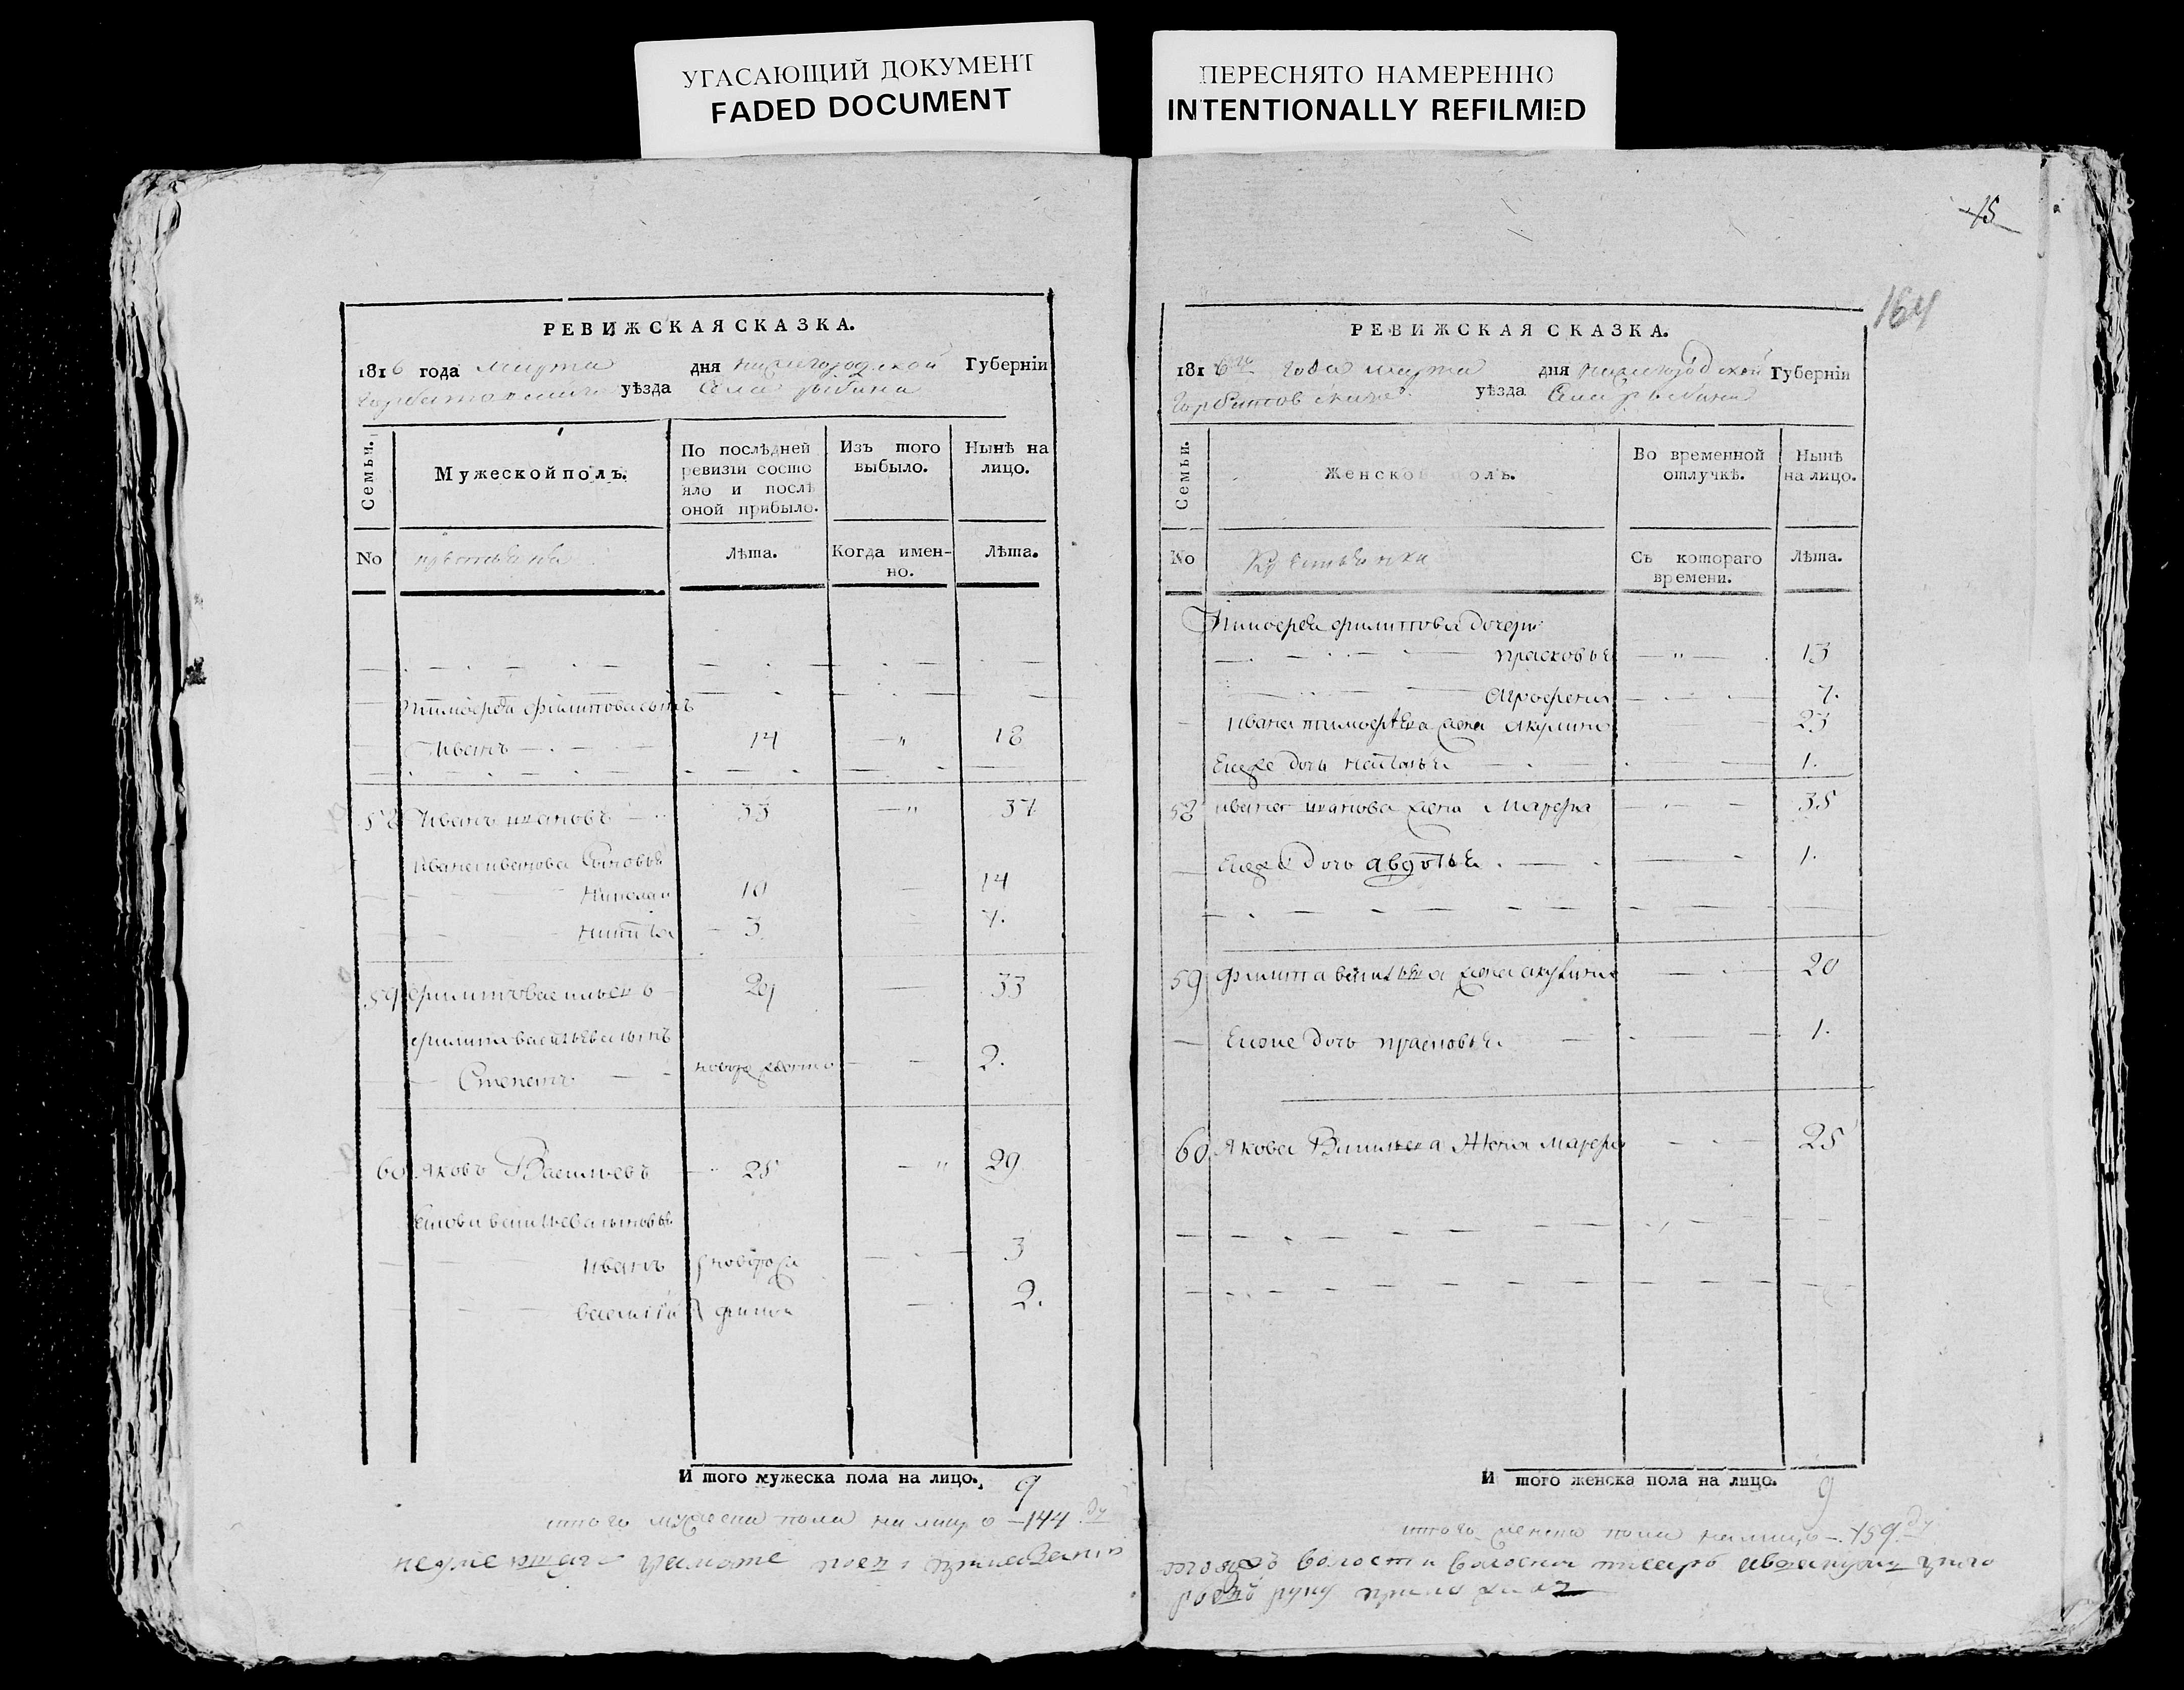 УГАСАЮЩИЙ ДОКУМЕНТ
FADED DOCUMENT
ПЕРЕСНЯТО НАМЕРЕННО
INTENTIONALLY REFILMED
РЕВИЖСКАЯ СКАЗКА.
1816 года марта дня нижегородской Губерніи
уѣзда Села рыбина
Семьи.
Мужеской полъ.
По послѣдней ревизіи состояло и послѣ оной прибыло.
Изъ того выбыло.
Нынѣ на лицо.
No крестьяне
Лѣта.
Когда именно.
Лѣта.
тимофея филиппова сынъ
Иванъ 14 18
58 Иванъ ивановъ 33 37
ивана иванова Сыновья
Николай 10 14
никита 3 7.
59 филиппъ васильевъ 29 33
филиппа васильева сынъ
Степанъ новорожденно 2.
60 Яковъ Васильевъ 25 29
якова васильева сыновья
иванъ новорож 3
василій 2.
И того мужеска пола на лицо. 9
итого мужеска пола на лицо 144 ду
грамоте
15
164
РЕВИЖСКАЯ СКАЗКА.
1816го года марта дня нижегородской Губерніи
уѣзда Села рыбина
Семьи.
Женской полъ.
Во временной отлучкѣ.
Нынѣ на лицо.
No Крестьянки
Съ котораго времени.
Лѣта.
Тимофея филиппова дочери
прасковья 13
Агрофена 7.
ивана тимофеева жена акулина 23
Ея же дочь наталья 1.
58 ивана иванова жена Марфа 35
Ея же дочь авдотья 1.
59 филиппа васильева жена акулина 20
Ея же дочь прасковья 1.
60 Якова Васильева Жена Марфа 25
И того женска пола на лицо. 9
итого женска пола на лицо 159. ду
волости писарь
руку приложил